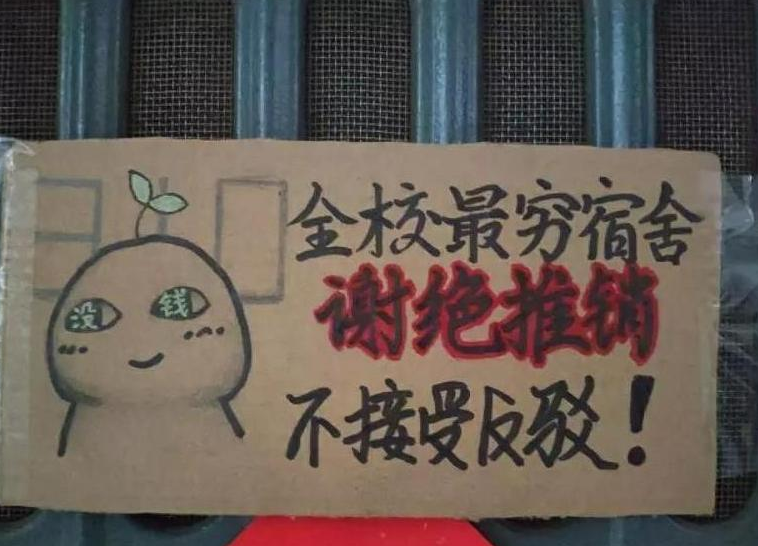 全校最穷宿舍
没 钱
谢绝推销
不接受反驳！